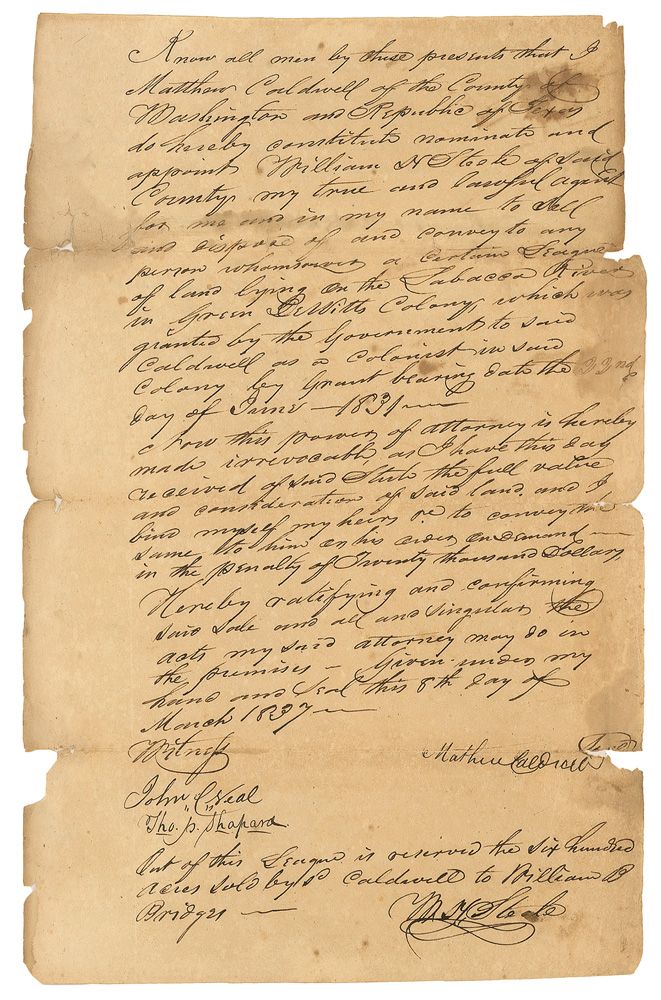 Know all men by these presents that I
Matthew Caldwell of the County of
Washington and Republic of Texas
do hereby constitute nominate and
appoint William H Steele of said
County, my true and lawful agent
for me and in my name to Sell
and dispose of and convey to any
person whomsoever a certain League
of land lying on the Labacca River
in Green DeWitts Colony, which was
granted by the Government to said
Caldwell as a Colonist in said
Colony by Grant bearing date the 22nd
day of June 1831
Now this power of attorney is hereby
made irrevocable as I have this day
received of said Stele the full value
and consideration of said land. and I
bind myself my heirs &c to convey the
same to him or his order on demand
in the penalty of Twenty thousand Dollars,
Hereby ratifying and confirming
said Sale and all and singular the
acts my said attorney may do in
the premises – Given under my
hand and Seal this 8th day of
March 1837
Witness
Mathew Caldwell
John C Neal
Tho. P. Shapard
Out of this League is reserved the six hundred
acres sold by sd Caldwell to William B
Bridges
W H Steele